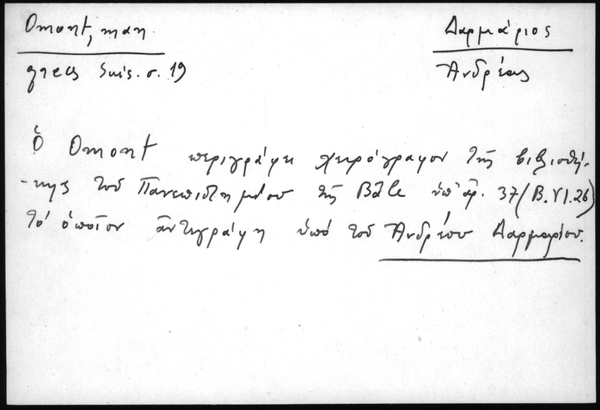 Omont, man.
grecs Suis. σ. 19
Δαρμάριος
Ἀνδρέας
Ὁ Omont περιγράφει χειρόγραφον τῆς βιβλιοθή-
-κης τοῦ Πανεπιστημίου τῆς Bâle ὑπ' ἀρ. 37 (B.VI.26)
τό ὁποῖον ἀντεγράφη ὑπό τοῦ Ἀνδρέου Δαρμαρίου.